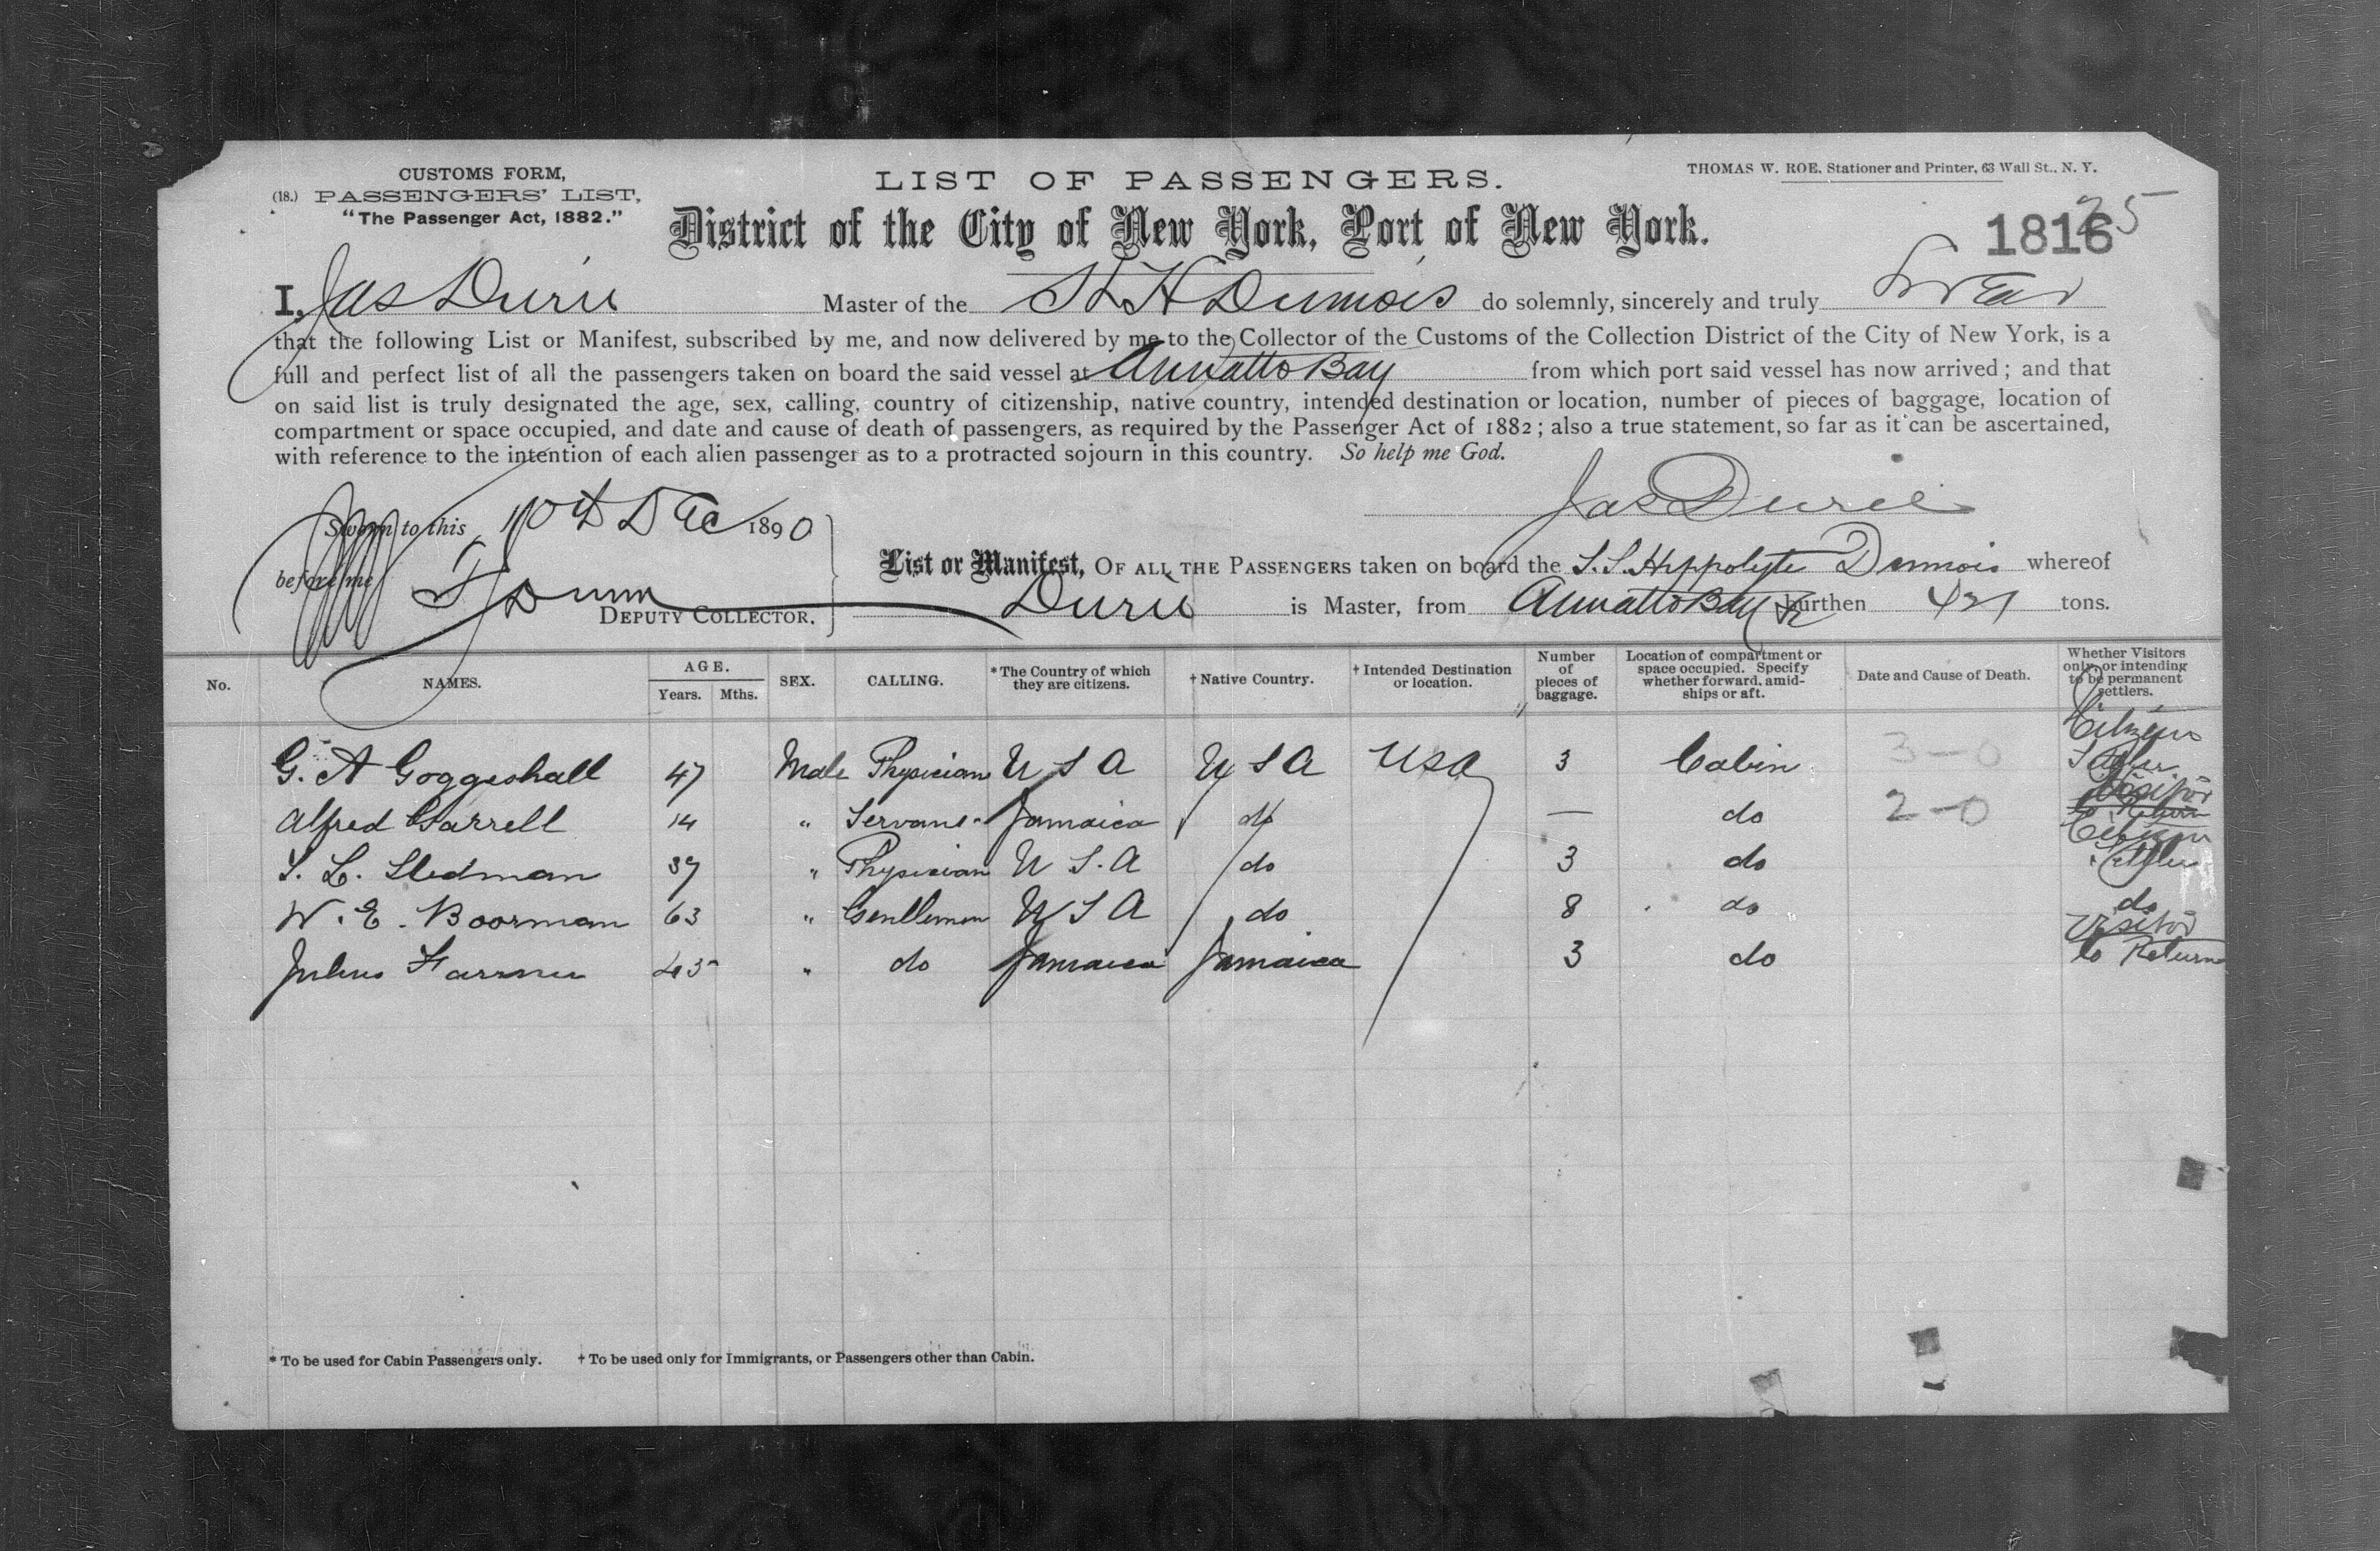 CUSTOMS FORM,
(18.) PASSENGERS' LIST,
"The Passenger Act, 1882."
LIST OF PASSENGERS.
THOMAS W. ROE, Stationer and Printer, 63 Wall St., N. Y.
District of the City of New York, Port of New York.
1816
25
I, Jas Durie Master of the H Dumois do solemnly, sincerely and truly swear
that the following List or Manifest, subscribed by me, and now delivered by me to the Collector of the Customs of the Collection District of the City of New York, is a
full and perfect list of all the passengers taken on board the said vessel at Annatto Bay from which port said vessel has now arrived; and that
on said list is truly designated the age, sex, calling, country of citizenship, native country, intended destination or location, number of pieces of baggage, location of
compartment or space occupied, and date and cause of death of passengers, as required by the Passenger Act of 1882; also a true statement, so far as it can be ascertained,
with reference to the intention of each alien passenger as to a protracted sojourn in this country. So help me God.
Jas Durie
Sworn to this 10th Dec 1890
before me Dunn
DEPUTY COLLECTOR.
List or Manifest, OF ALL THE PASSENGERS taken on board the S.S. Hippolyte Dumois whereof
Durie is Master, from Annatto Bay burthen 421 tons.
No. NAMES. AGE. Years. Mths. SEX. CALLING. *The Country of which they are citizens. †Native Country. †Intended Destination or location. Number of pieces of baggage. Location of compartment or space occupied. Specify whether forward, amidships or aft. Date and Cause of Death. Whether Visitors only, or intending to be permanent settlers.
G. A Goggeshall 47 Male Physician U S A U S A USA 3 Cabin 3-0 Citizen
Alfred Garrell 14 " Servant Jamaica do — do 2-0 Visitor to Return
S. L. Stedman 37 " Physician U S. A do 3 do Citizen Settler
W. E. Boorman 63 " Gentleman U S A do 8 do do
Julius Farmer 43 " do Jamaica Jamaica 3 do Visitor to Return
* To be used for Cabin Passengers only. † To be used only for Immigrants, or Passengers other than Cabin.